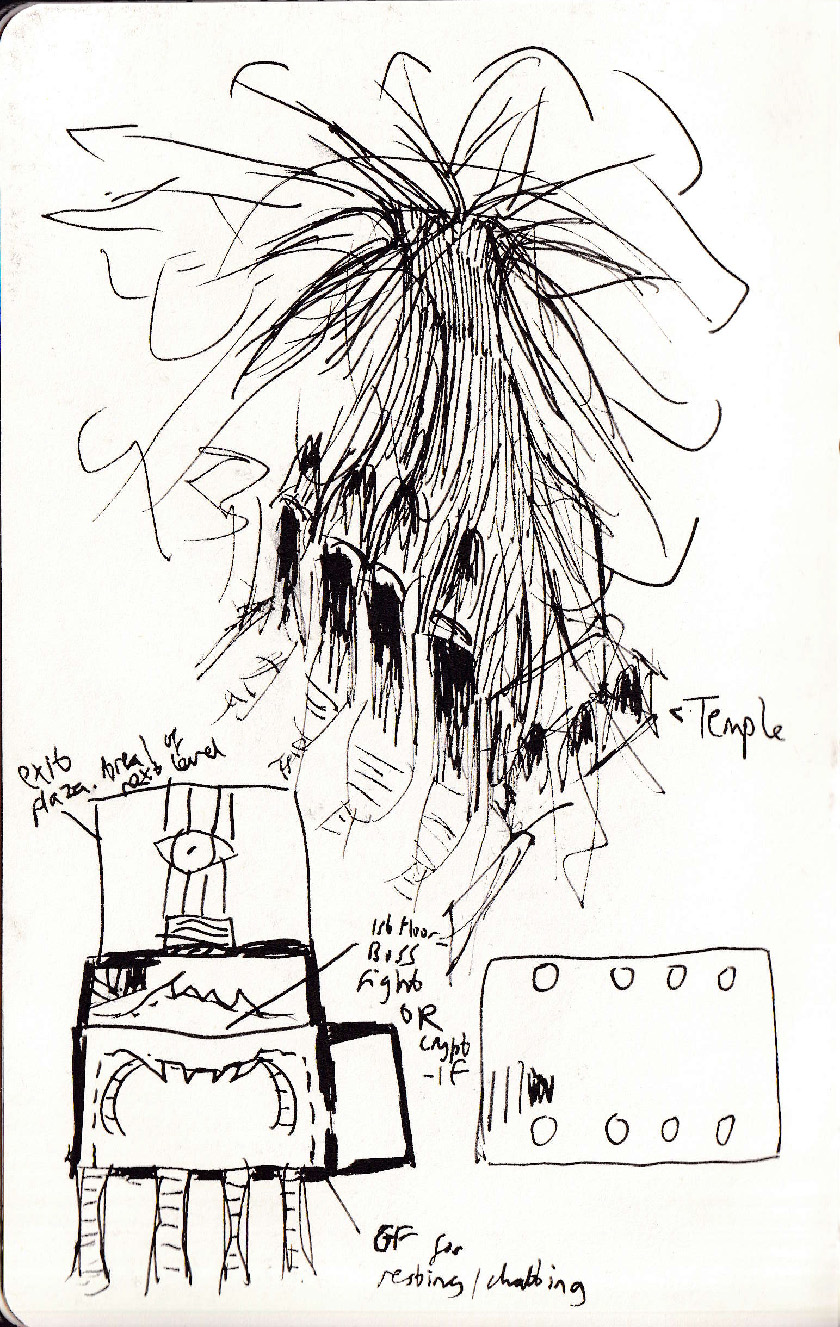 < Temple
exit
plaza. Area of
next level
1st floor
Boss
Fight
OR
Crypt
-1F
GF for
resting / chatting